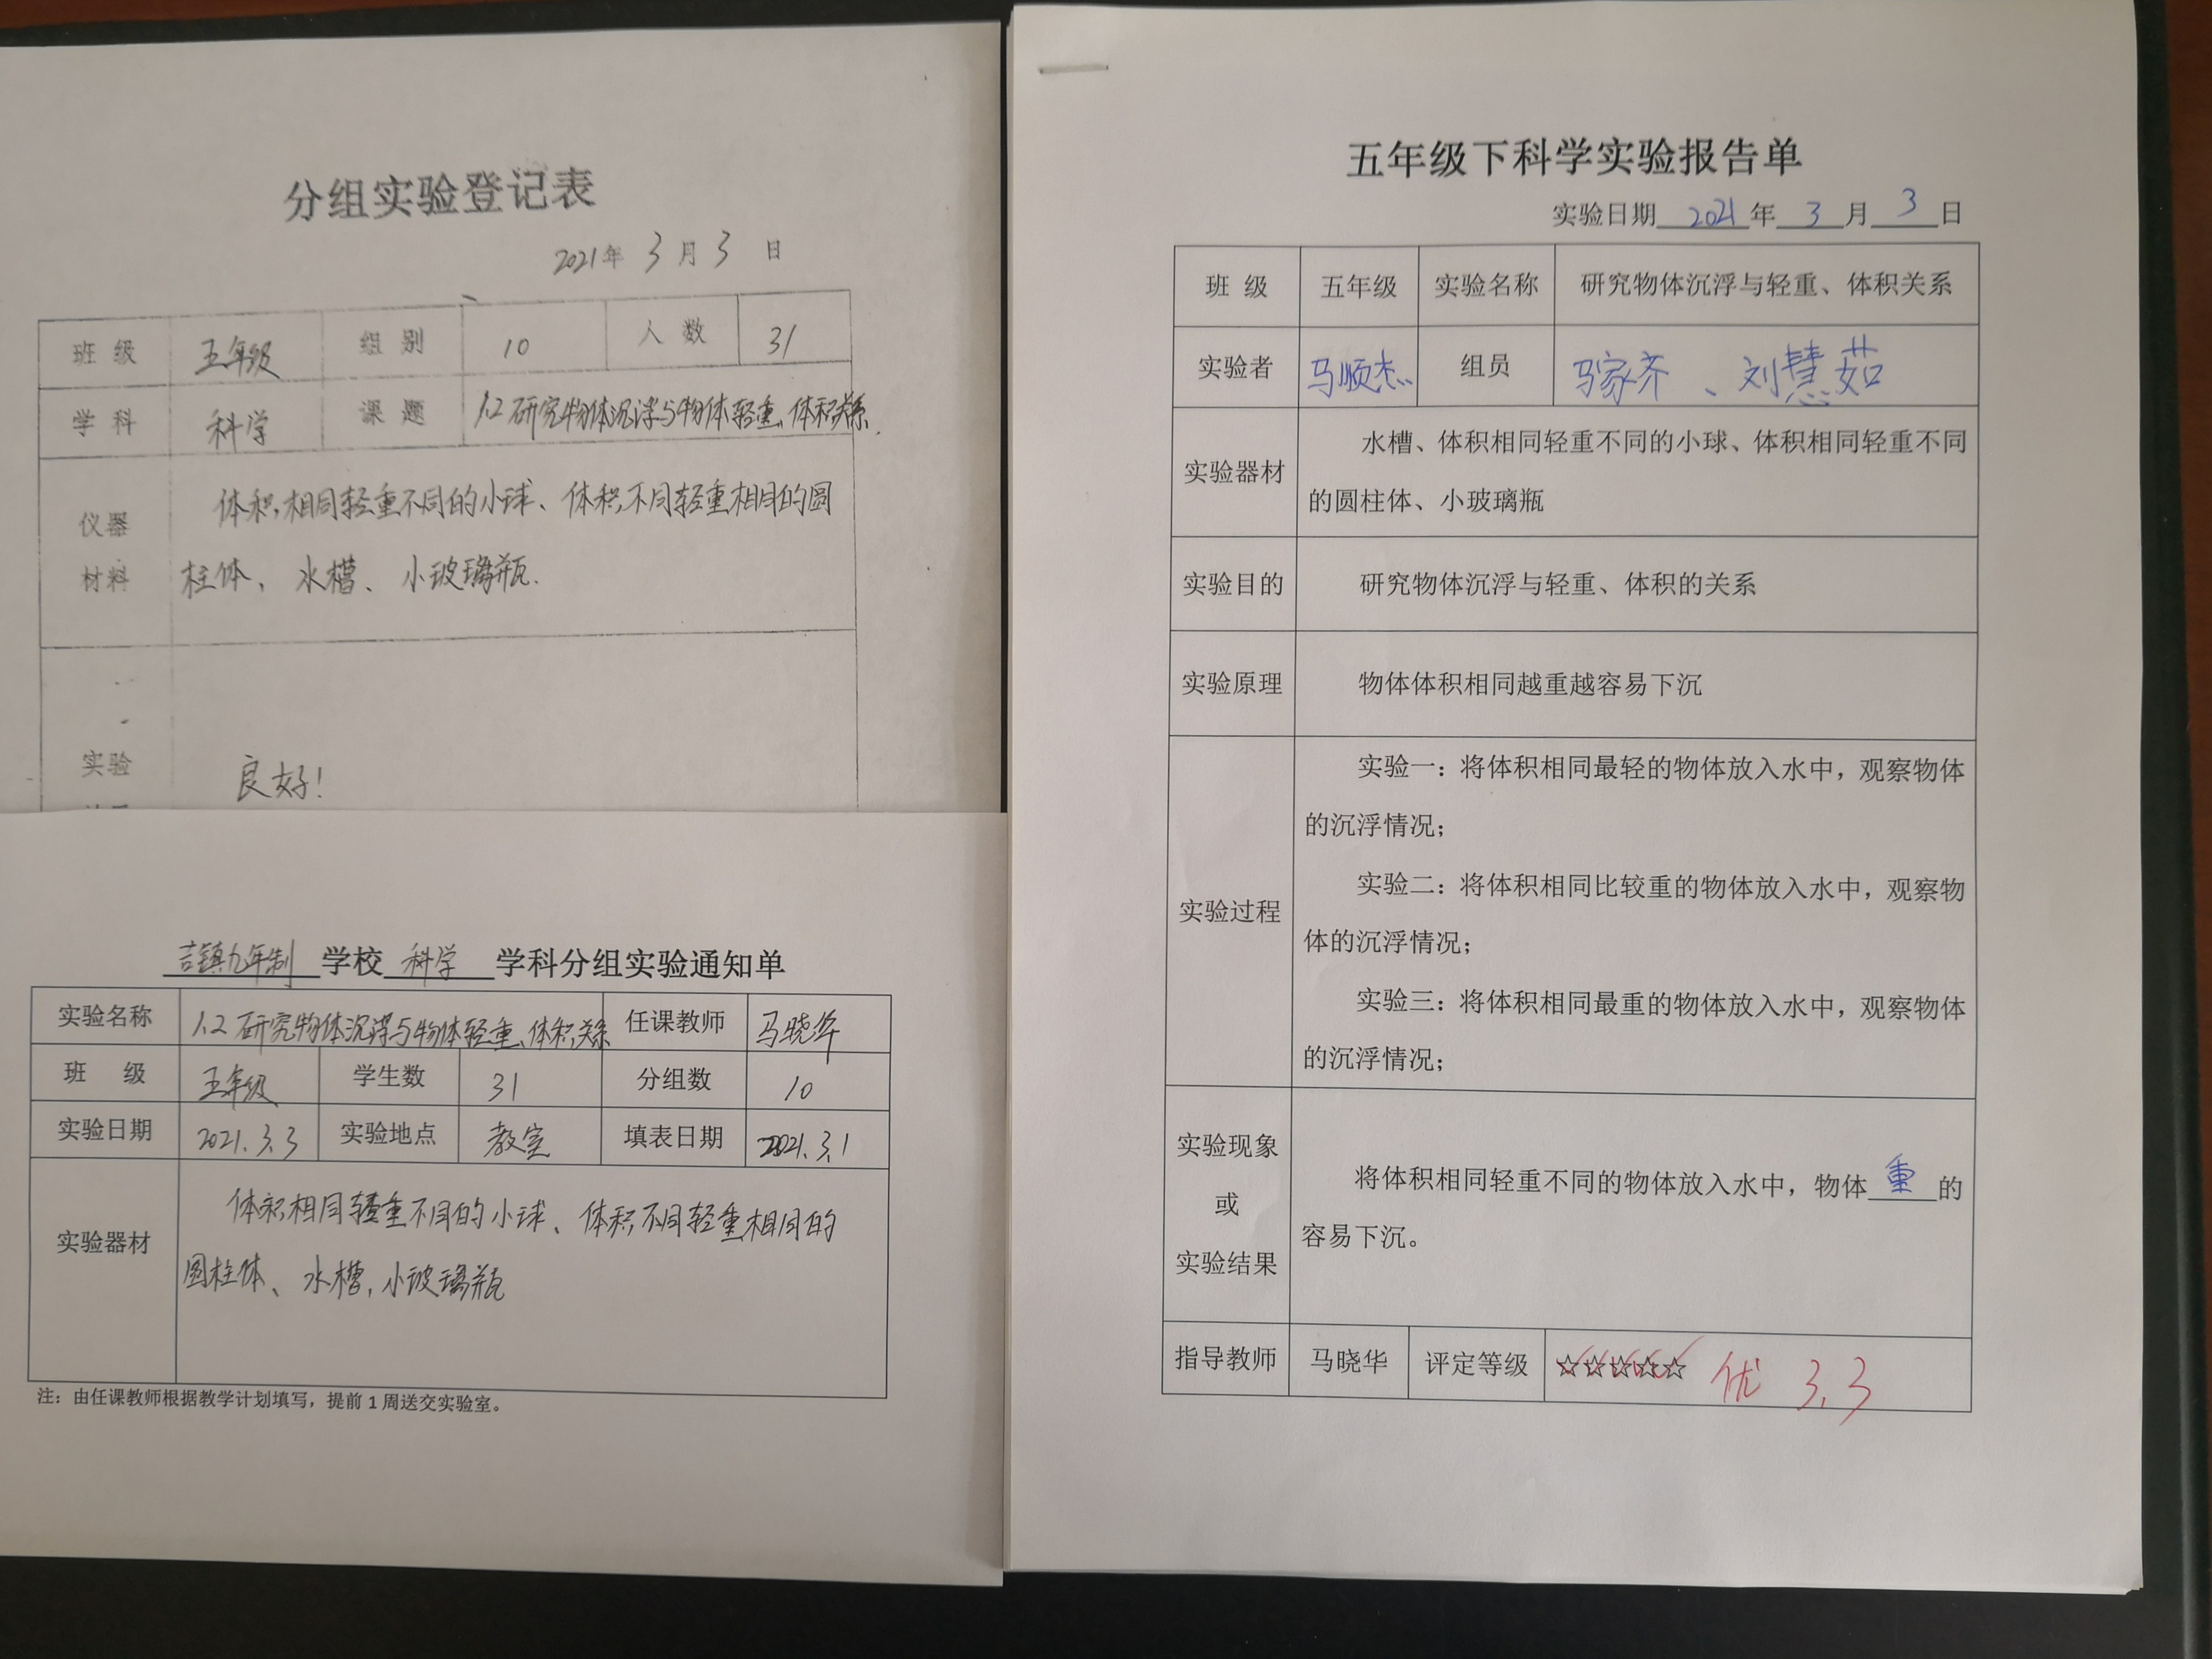 分组实验登记表
2021年 3月 3日
班级 五年级 组别 10 人数 31
学科 科学 课题 1.2研究物体沉浮与物体轻重、体积关系.
仪器材料 体积相同轻重不同的小球、体积不同轻重相同的圆
柱体、水槽、小玻璃瓶.
实验 良好!
吉镇九年制 学校 科学 学科分组实验通知单
实验名称 1.2研究物体沉浮与物体轻重、体积关系 任课教师 马晓华
班级 五年级 学生数 31 分组数 10
实验日期 2021.3.3 实验地点 教室 填表日期 2021.3.1
实验器材 体积相同轻重不同的小球、体积不同轻重相同的
圆柱体、水槽,小玻璃瓶
注:由任课教师根据教学计划填写,提前1周送交实验室。
五年级下科学实验报告单
实验日期 2021 年 3 月 3 日
班级 五年级 实验名称 研究物体沉浮与轻重、体积关系
实验者 马顺杰 组员 马家齐、刘慧茹
实验器材 水槽、体积相同轻重不同的小球、体积相同轻重不同
的圆柱体、小玻璃瓶
实验目的 研究物体沉浮与轻重、体积的关系
实验原理 物体体积相同越重越容易下沉
实验过程 实验一:将体积相同最轻的物体放入水中,观察物体
的沉浮情况;
实验二:将体积相同比较重的物体放入水中,观察物
体的沉浮情况;
实验三:将体积相同最重的物体放入水中,观察物体
的沉浮情况;
实验现象
或
实验结果
将体积相同轻重不同的物体放入水中,物体 重 的
容易下沉。
指导教师 马晓华 评定等级 ☆☆☆☆☆ 优 3.3